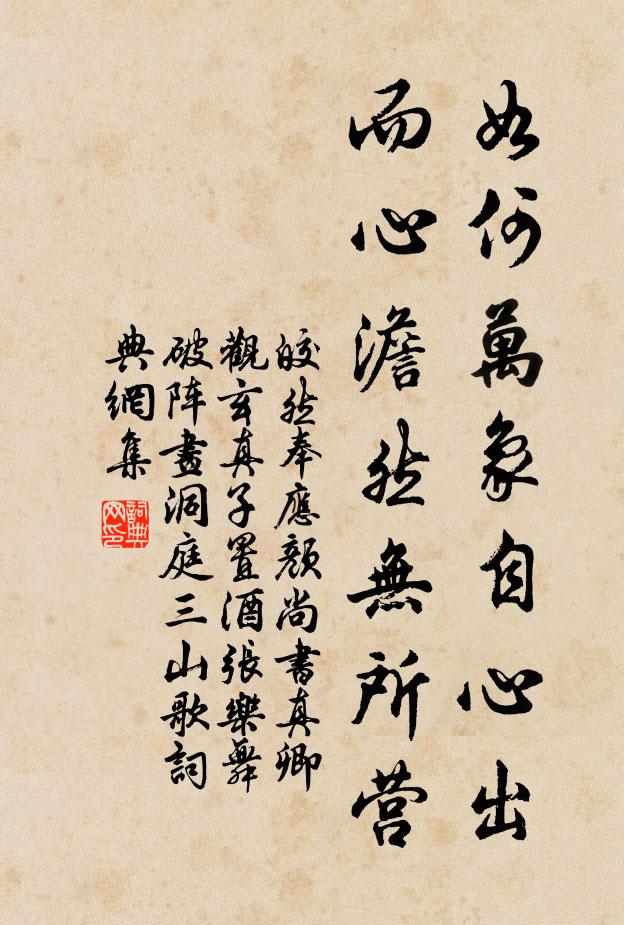 如何萬象自心出
而心澹然無所营
皎然奉應顏尚書真卿
觀玄真子置酒張樂舞
破阵畫洞庭三山歌詞
典網集
詞典
网印